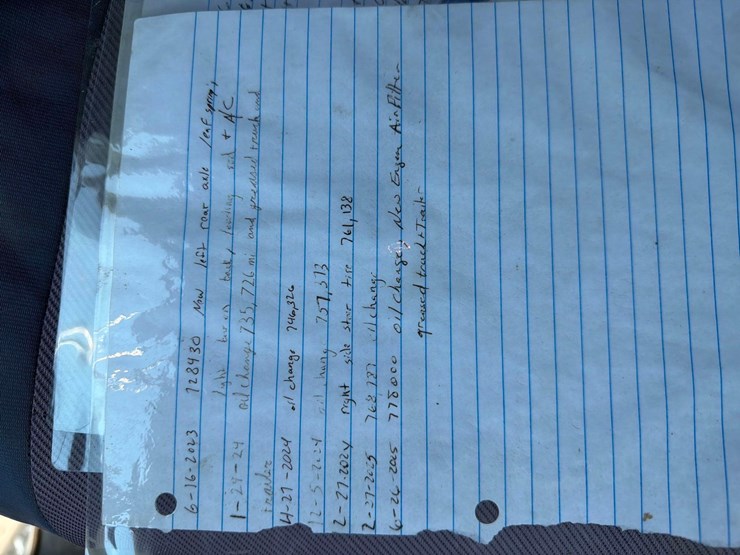 6-16-2023 728430 New left rear axle leaf springs
light bar on back, leveling rod + A/C
1-29-24 oil change 735,726 mi and greased truck and
trailer
4-27-2024 oil change 746,326
12-5-2024 oil chang 757,513
2-27-2024 right side steer tire 761,138
2-27-2025 oil change
6-26-2025 778000 oil change, New Engen Air Filter
greased truck + Trailer